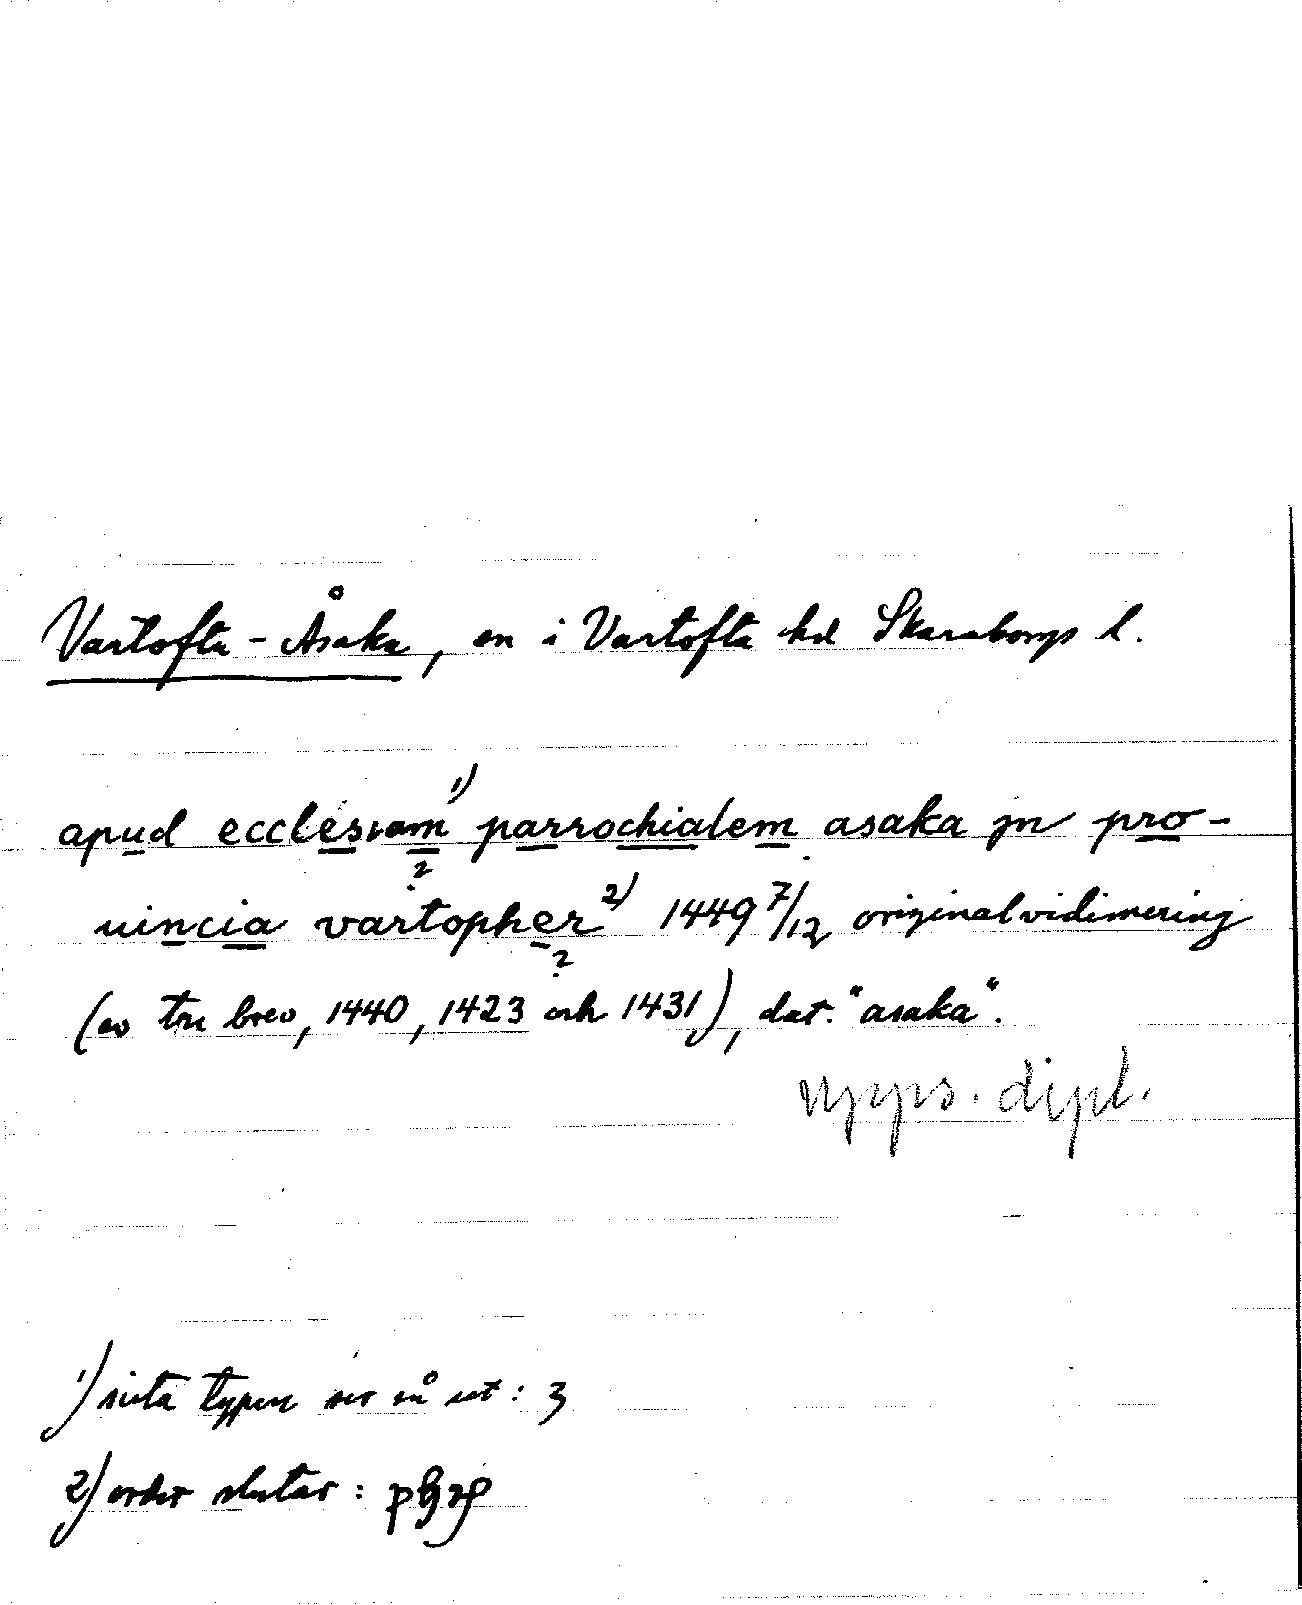 Vartofta-Åsaka, sn i Vartofta hd Skaraborgs l.
apud ecclesiam 1) parrochialem asaka jn pro-
?
uincia vartopher 2) 1449 7/12 originalvidimering
?
(av tre brev, 1440, 1423 och 1431), dat. "asaka".
Upps. dipl.
1) sista typen ser så ut: ʒ
2) ordet slutar: